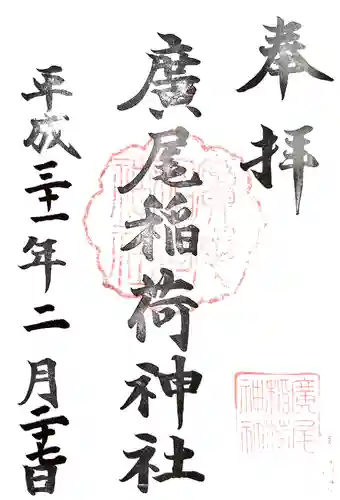 奉拝
廣尾稲荷神社
平成三十一年二月二十七日
廣尾稲荷神社